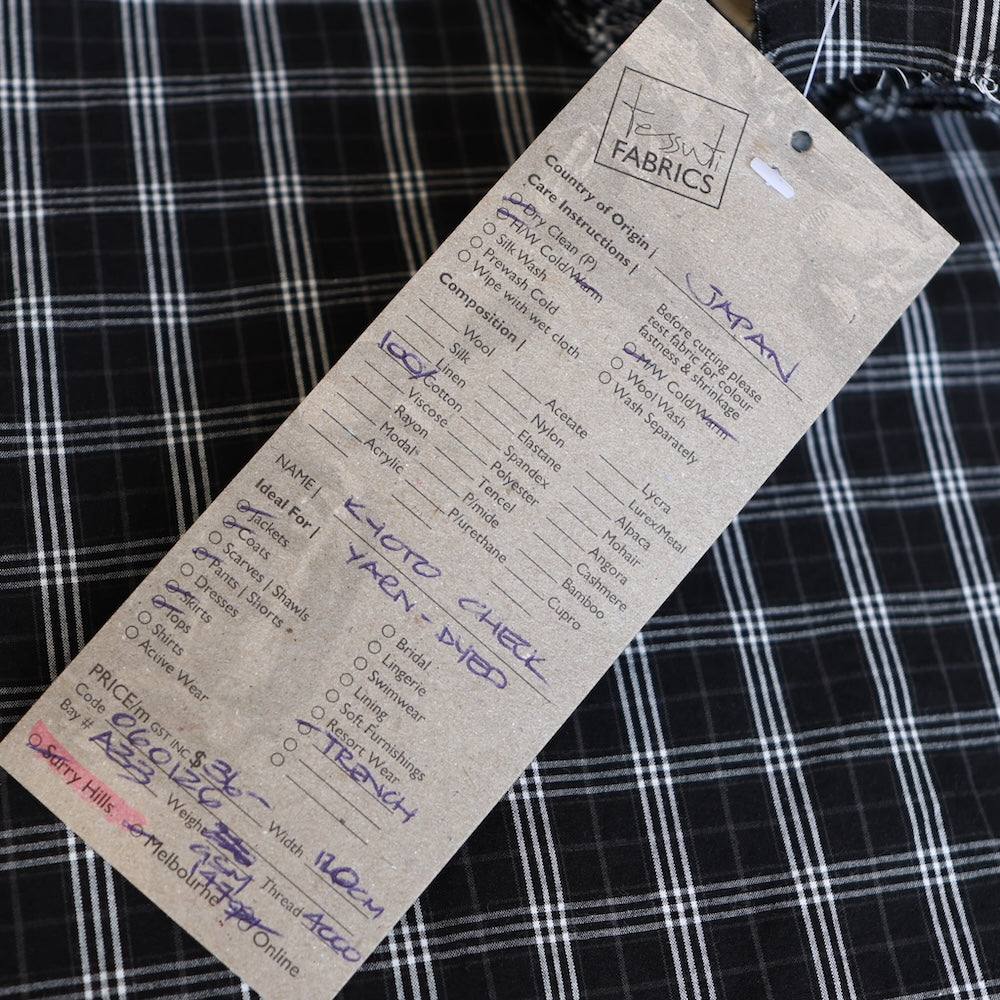 Tessuti
FABRICS
Country of Origin | JAPAN
Care Instructions |
Dry Clean (P)
H/W Cold/Warm
Silk Wash
Prewash Cold
Wipe with wet cloth
Before cutting please
test fabric for colour
fastness & shrinkage
H/W Cold/Warm
Wool Wash
Wash Separately
Composition |
Wool
Silk
Linen
100% Cotton
Viscose
Rayon
Modal
Acrylic
Acetate
Nylon
Elastane
Spandex
Polyester
Tencel
P/mide
P/urethane
Lycra
Lurex/Metal
Alpaca
Mohair
Angora
Cashmere
Bamboo
Cupro
NAME | KYOTO CHECK
YARN-DYED
Ideal For |
Jackets
Coats
Scarves | Shawls
Pants | Shorts
Dresses
Skirts
Tops
Shirts
Active Wear
Bridal
Lingerie
Swimwear
Lining
Soft Furnishings
Resort Wear
TRENCH
PRICE/m GST INC $ 36-
Code 060126 Width 120CM
Bay # A33 Weight GSM 147 Thread A000
Surry Hills Melbourne Online